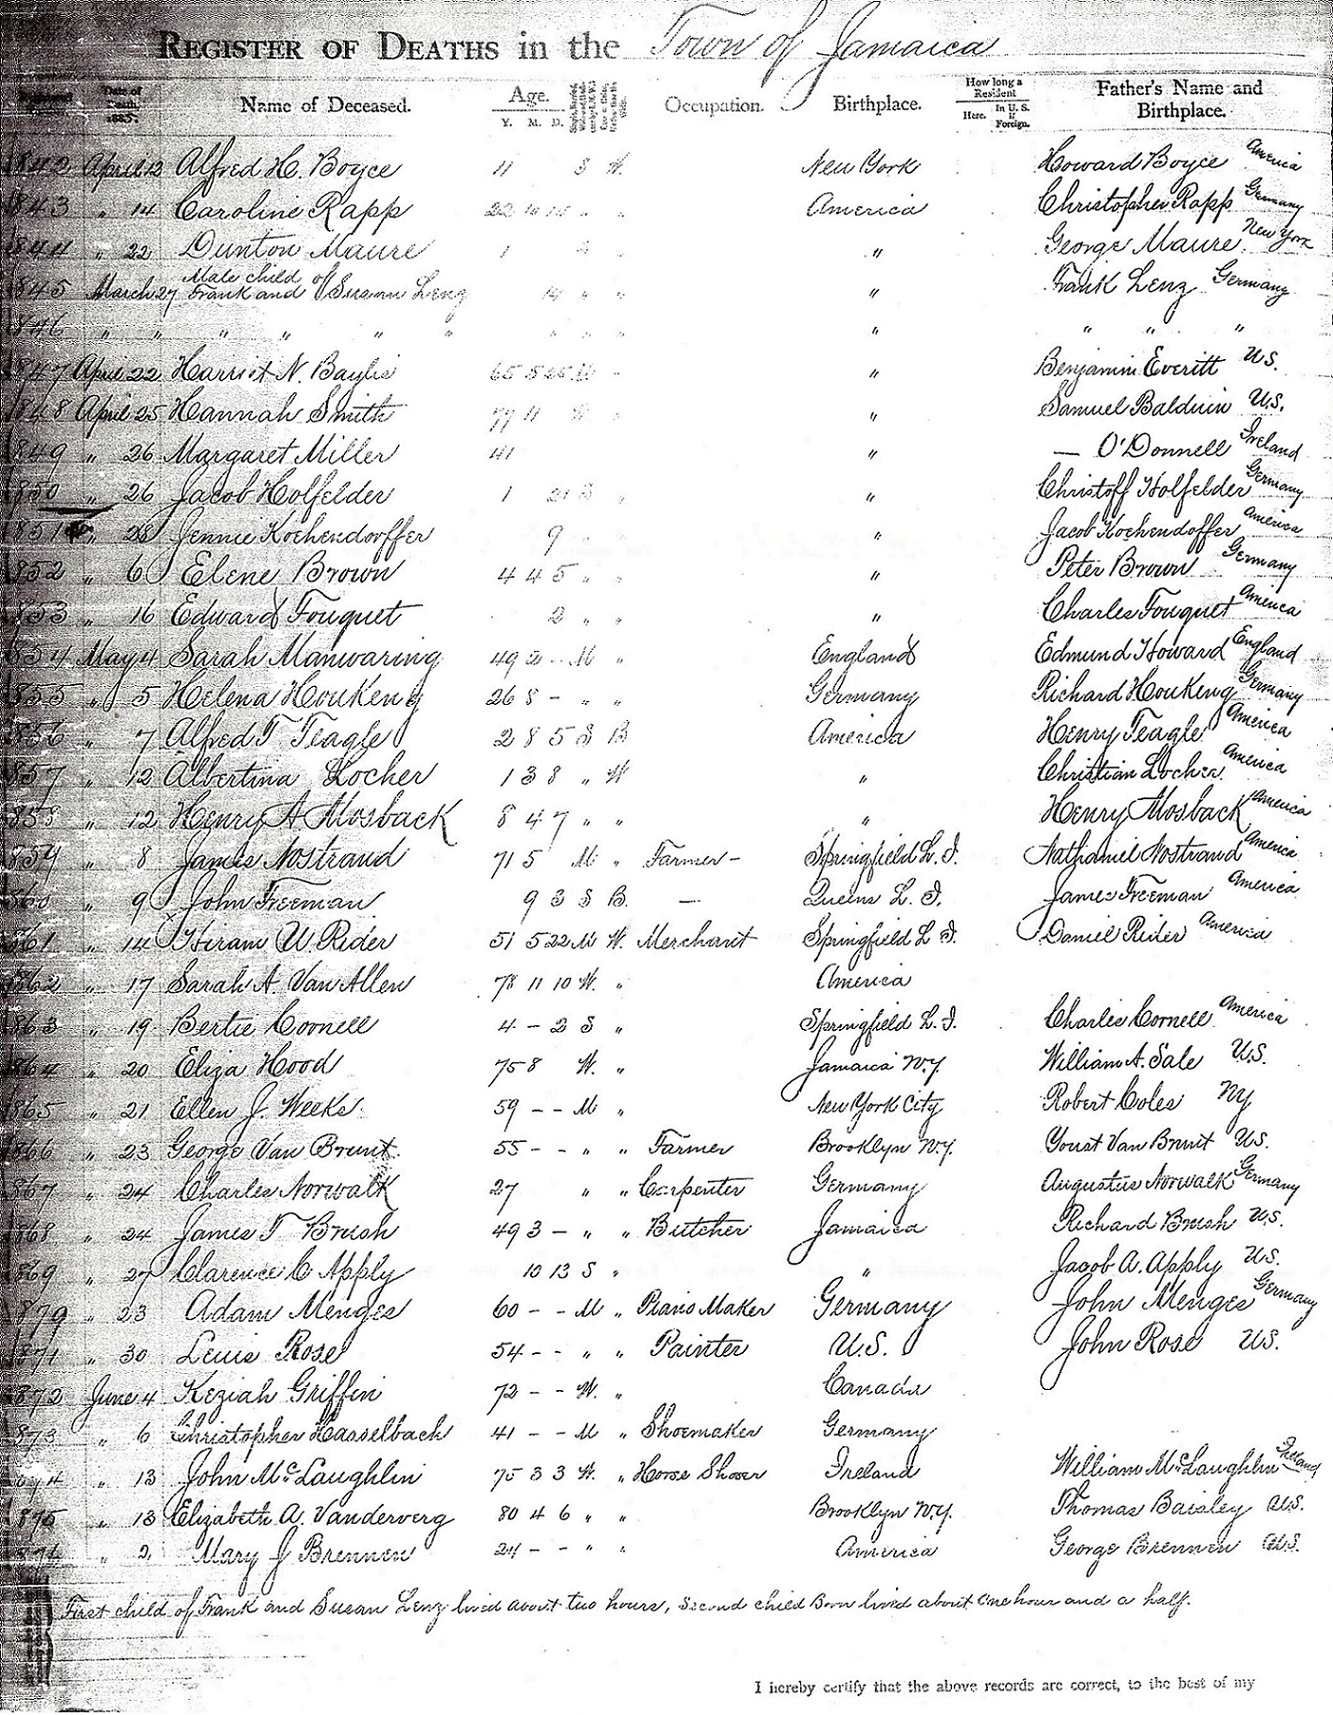 REGISTER OF DEATHS in the Town of Jamaica
Date of Death, 1885. Name of Deceased. Age. Occupation. Birthplace. How long a Resident Father's Name and Birthplace.
Y. M. D. Here. In U. S. if Foreign.
1842 April 12 Alfred H. Boyce 11 S W. New York Howard Boyce America
1843 " 14 Caroline Rapp 22 10 " " America Christopher Rapp Germany
1844 " 22 Dunton Maure 1 " George Maure New York
1845 March 27 Male child of Frank and Susan Lenz " " " Frank Lenz Germany
1846 " " " " " " " " " " " " "
1847 April 22 Harriet N. Baylis 65 5 25 " Benjamin Everitt U.S.
1848 April 25 Hannah Smith 77 11 " Samuel Balduin U.S.
1849 " 26 Margaret Miller 41 " — O'Donnell Ireland
1850 " 26 Jacob Holfelder 1 21 S " " Christoff Holfelder Germany
1851 " 28 Jennie Kochendorffer 9 " Jacob Kochendoffer America
1852 " 6 Elene Brown 4 4 5 " " " Peter Brown Germany
1853 " 16 Edward Fouquet 2 " " " Charles Fouquet America
1854 May 4 Sarah Manwaring 49 2 - M " England Edmund Howard England
1855 " 5 Helena Houkeng 26 8 - " " Germany Richard Houking Germany
1856 " 7 Alfred T Teagle 2 8 5 S B America Henry Teagle America
1857 " 12 Albertina Locher 1 3 8 " W " Christian Locher America
1858 " 12 Henry A Mosback 8 4 7 " " " Henry Mosback America
1859 " 8 James Nostrand 71 5 M " Farmer - Springfield L. I. Nathaniel Nostrand America
1860 " 9 John Freeman 9 3 S B. — Queens L. I. James Freeman America
1861 " 14 Hiram W. Rider 51 5 22 M W. Merchant Springfield L I. Daniel Rider America
1862 " 17 Sarah A. Van Allen 78 11 10 W. " America
1863 " 19 Bertie Cornell 4 - 2 S " Springfield L. I. Charles Cornell America
1864 " 20 Eliza Hood 75 8 W. " Jamaica N.Y. William A. Sale U.S.
1865 " 21 Ellen J. Weeks. 59 - - M " New York City Robert Coles NY
1866 " 23 George Van Brunt. 55 - - " " Farmer Brooklyn N.Y. Yourt Van Brunt U.S.
1867 " 24 Charles Norwalk 27 " " Carpenter Germany Augustus Norwalk Germany
1868 " 24 James T Brush 49 3 - " " Butcher Jamaica Richard Brush U.S.
1869 " 27 Clarence C Apply 10 13 S " " Jacob A. Apply U.S.
1879 " 23 Adam Menges 60 - - M " Piano Maker Germany John Menges Germany
1871 " 30 Lewis Rose 54 - - " " Painter U.S. John Rose U.S.
1872 June 4 Keziah Griffin 72 - - W. " Canada
1873 " 6 Christopher Hasselbach 41 - - M " Shoemaker Germany
1874 " 13 John McLaughlin 75 3 3 W. " Horse Shoer Ireland William McLaughlin Ireland
1875 " 13 Elizabeth A. Vanderverg 80 4 6 " " Brooklyn N.Y. Thomas Baisley U.S.
" 2 Mary J Brennen 24 - - " " America George Brennen U.S.
First child of Frank and Susan Lenz lived about two hours, second child Born lived about one hour and a half.
I hereby certify that the above records are correct, to the best of my